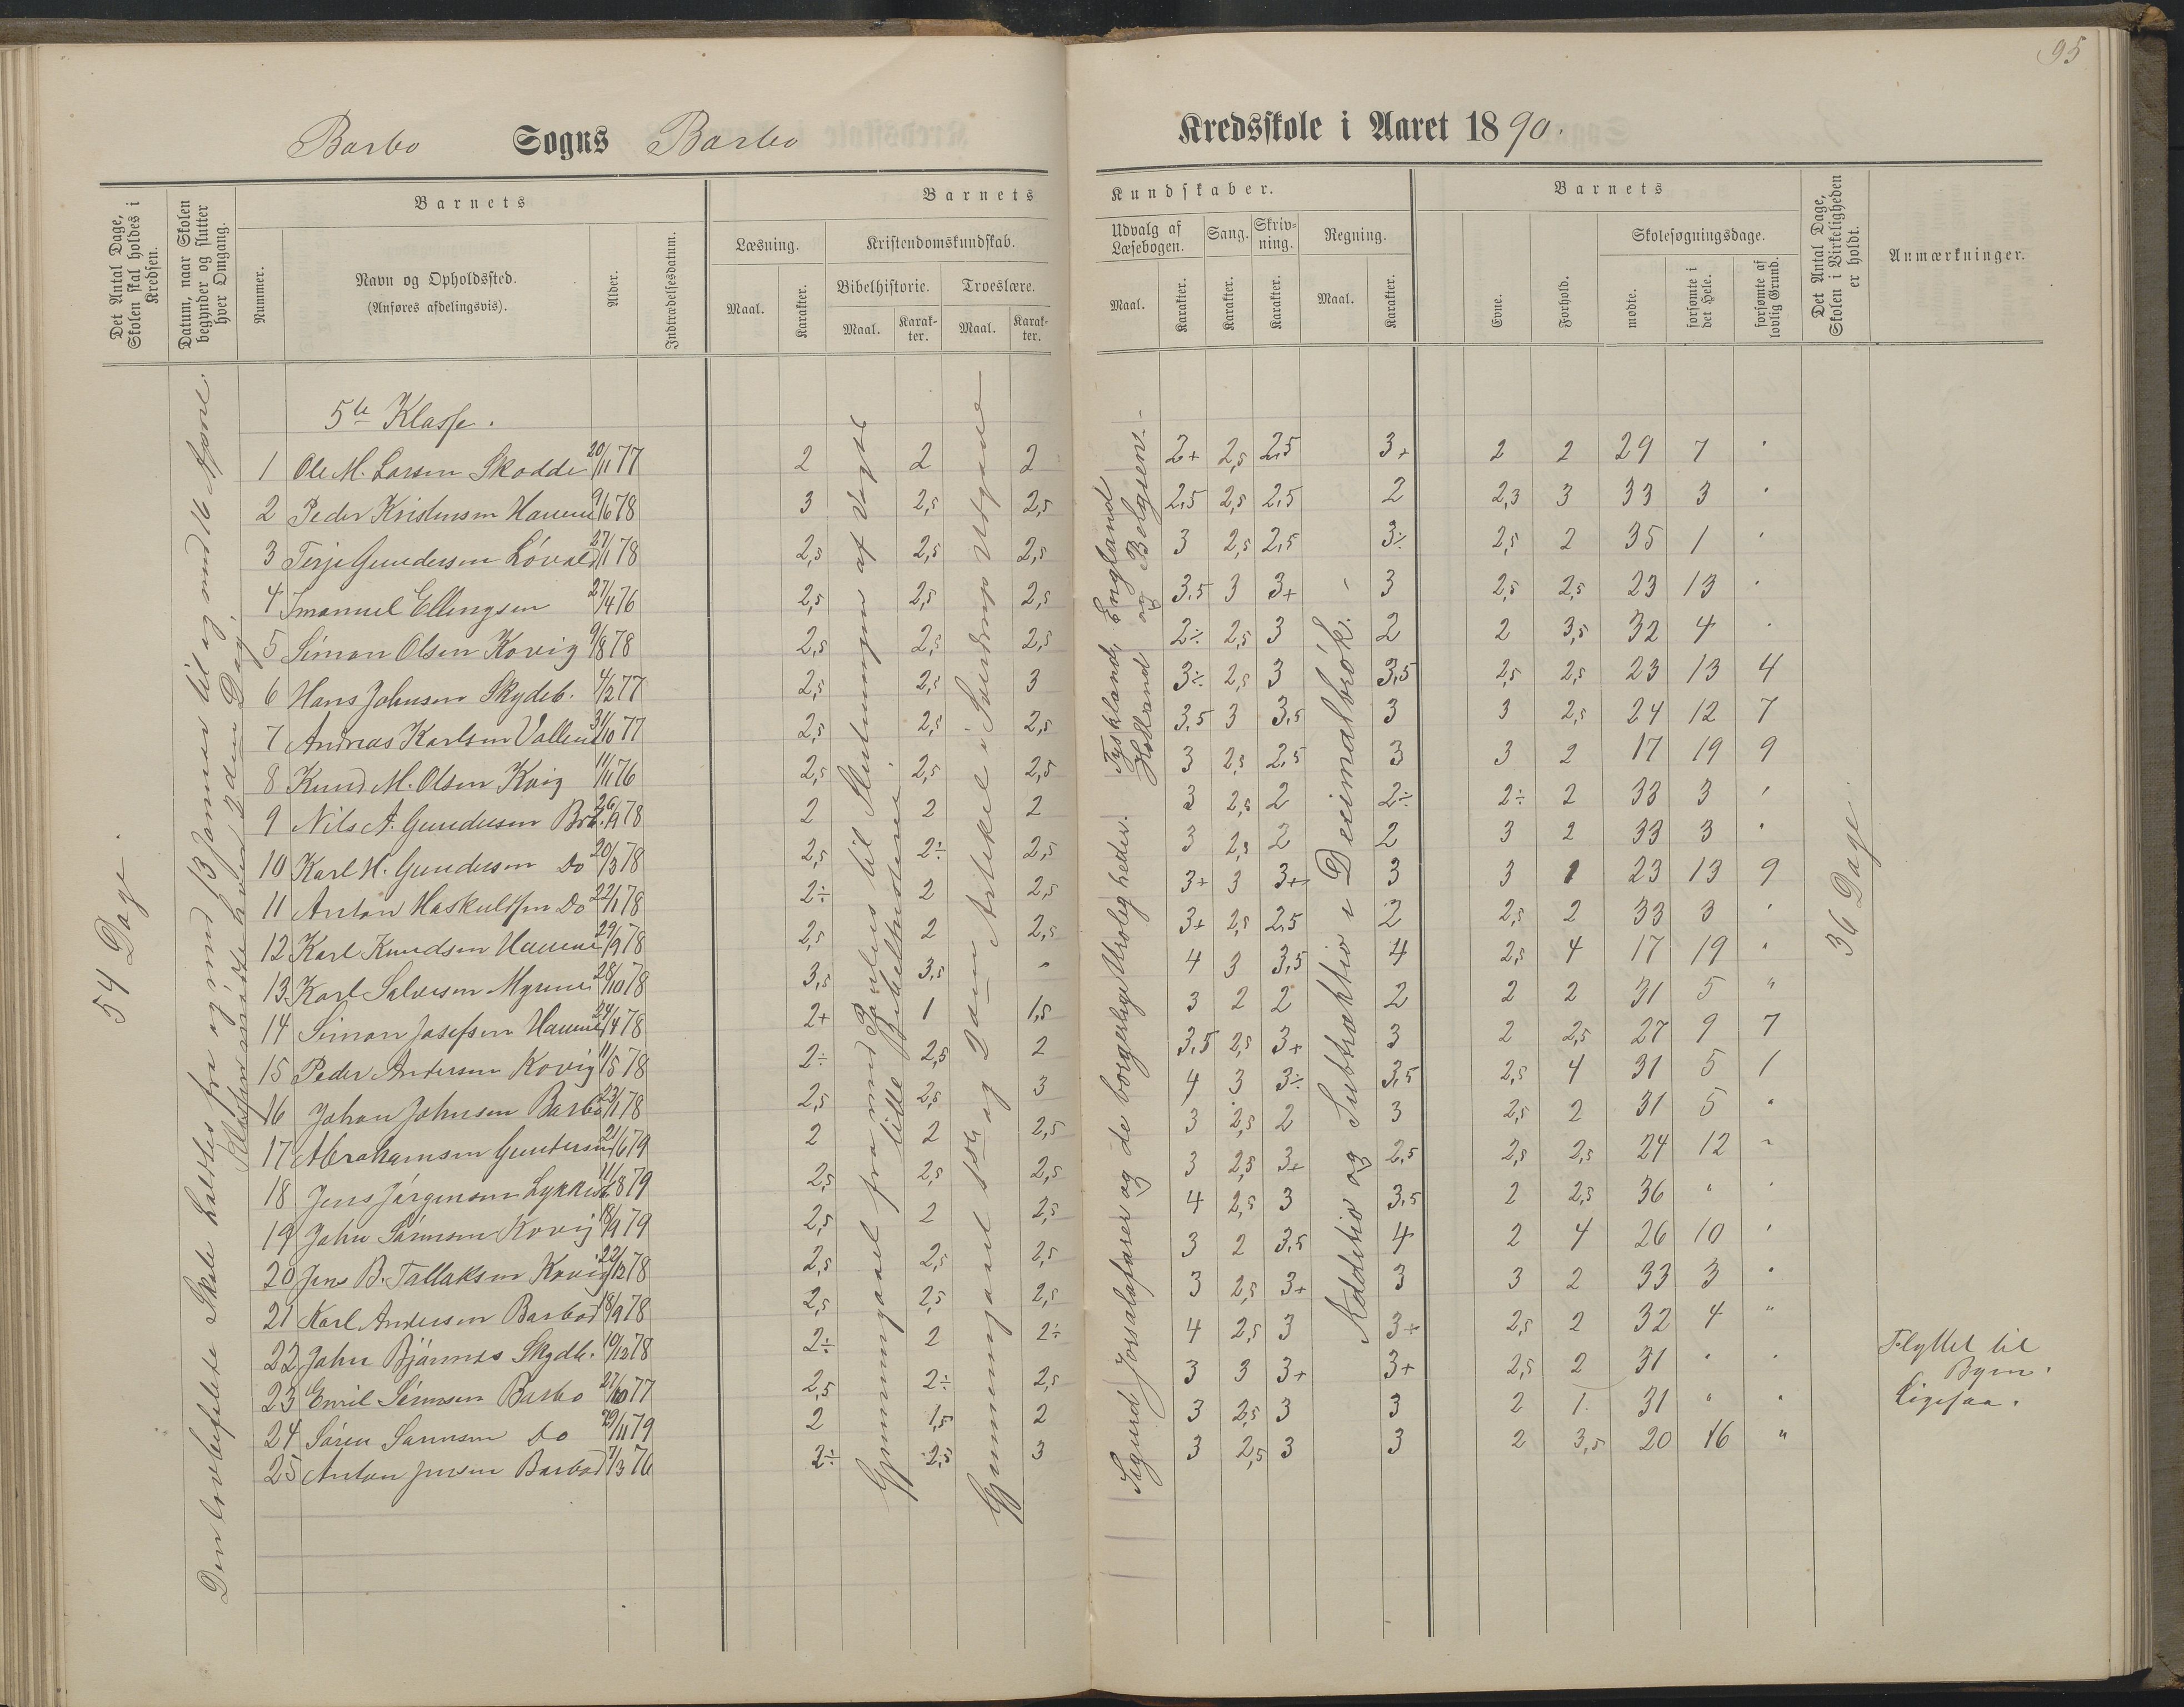 95
Barbo Sogns Barbo Kredsskole i Aaret 1890.
Det Antal Dage, Skolen skal holdes i Kredsen.
Datum, naar Skolen begynder og slutter hver Omgang.
Barnets
Nummer.
Navn og Opholdssted.
(Anføres afdelingsvis).
Alder.
Indtrædelsesdatum.
Barnets Kundskaber.
Læsning.
Maal.
Karakter.
Kristendomskundskab.
Bibelhistorie.
Maal.
Karakter.
Troeslære.
Maal.
Karakter.
Udvalg af Læsebogen.
Maal.
Karakter.
Sang.
Karakter.
Skrivning.
Karakter.
Regning.
Maal.
Karakter.
Barnets
Evne.
Forhold.
Skolesøgningsdage.
mødte.
forsømte i det Hele.
forsømte af lovlig Grund.
Det Antal Dage, Skolen i Virkeligheden er holdt.
Anmærkninger.
54 Dage.
Den lovbefalede Skole holdtes fra og med 13 Januar til og med 16 April.
Klassen mødte hver 2den Dag.
Gjennemgaaet fra
til Slutningen af
lille Bibelhistorie
Gjennemgaaet 1ste og 2den Artikel i Sverdrups Udgave
Sigurd Jorsalafarer og de borgerlige Uroligheder.
Tyskland, England
Holland og Belgien.
Addition og Subtraktion i Decimalbrøk.
36 Dage.
5te Klasse.
1 Ole M. Larsen Skodde 20/11 77 2 2 2 2+ 2,5 2,5 3+ 2 2 29 7 "
2 Peder Kristensen 9/6 78 3 2,5 2,5 2,5 2,5 2,5 2 2,3 3 33 3 "
3 Terje Gundersen Løvald 27/1 78 2,5 2,5 2,5 3 2,5 2,5 3÷ 2,5 2 35 1 "
4 Imanuel Ellingsen 27/4 76 2,5 2,5 2,5 3,5 3 3+ 3 2,5 2,5 23 13 "
5 Simon Olsen Kovig 9/8 78 2,5 2,5 2,5 2÷ 2,5 3 2 2 3,5 32 4 "
6 Hans Johnsen Skydeb. 4/2 77 2,5 2,5 3 3÷ 2,5 3 3,5 2,5 2,5 23 13 4
7 Andreas Karlsen 31/10 77 2,5 2,5 2,5 3,5 3 3,5 3 3 2,5 24 12 7
8 Knud M. Olsen 11/11 76 2,5 2,5 2,5 3 2,5 2,5 3 3 2 17 19 9
9 Nils A. Gundersen 26/9 78 2 2 2 3 2,5 2 2÷ 2÷ 2 33 3 "
10 Karl H. Gundersen Do 20/3 78 2,5 2÷ 2,5 3 2,5 2 2 3 2 33 3 "
11 Anton Haskuldsen Do 22/1 78 2÷ 2 2,5 3+ 3 3+ 3 3 1 23 13 9
12 Karl Knudsen 29/9 78 2,5 2 2,5 3+ 2,5 2,5 2 2,5 2 33 3 "
13 Karl Salvesen Myrene 28/10 78 3,5 3,5 " 4 3 3,5 4 2,5 4 17 19 "
14 Simon Josefsen 24/4 78 2+ 1 1,5 3 2 2 2 2 2 31 5 "
15 Peder Andersen Kovig 11/5 78 2÷ 2,5 2 3,5 2,5 3+ 3 2 2,5 27 9 7
16 Johan Johnsen Barbo 23/1 78 2,5 2,5 3 4 3 3÷ 3,5 2,5 4 31 5 1
17 Abrahamsen Gundersen 21/6 79 2 2 2,5 3 2,5 2 3 2,5 2 31 5 "
18 Jens Jørgensen 11/8 79 2,5 2,5 2,5 3 2,5 3+ 2,5 2,5 2,5 24 12 "
19 John Sørensen Kovig 18/9 79 2,5 2 2,5 4 2,5 3 3,5 2 2,5 36 " "
20 Jens B. Tallaksen Kovig 22/12 78 2,5 2,5 2,5 3 2 3,5 4 2 4 26 10 "
21 Karl Andersen Barbod 18/9 78 2,5 2,5 2,5 3 2,5 3+ 3 3 2 33 3 "
22 John Bjørnnes Skydb. 10/12 78 2÷ 2 2÷ 4 2,5 3 3+ 2,5 2 32 4 "
23 Emil Simonsen Barbo 27/10 77 2,5 2÷ 2,5 3 3 3+ 3+ 2,5 2 31 " " Flyttet til Byen.
24 Søren Sørensen Do 29/11 79 2 1,5 2 3 2,5 3 3 2 1 31 " " Ligesaa.
25 Anton Jensen Barbod 7/3 76 2÷ 2,5 3 3 2,5 3 3 2 3,5 20 16 "